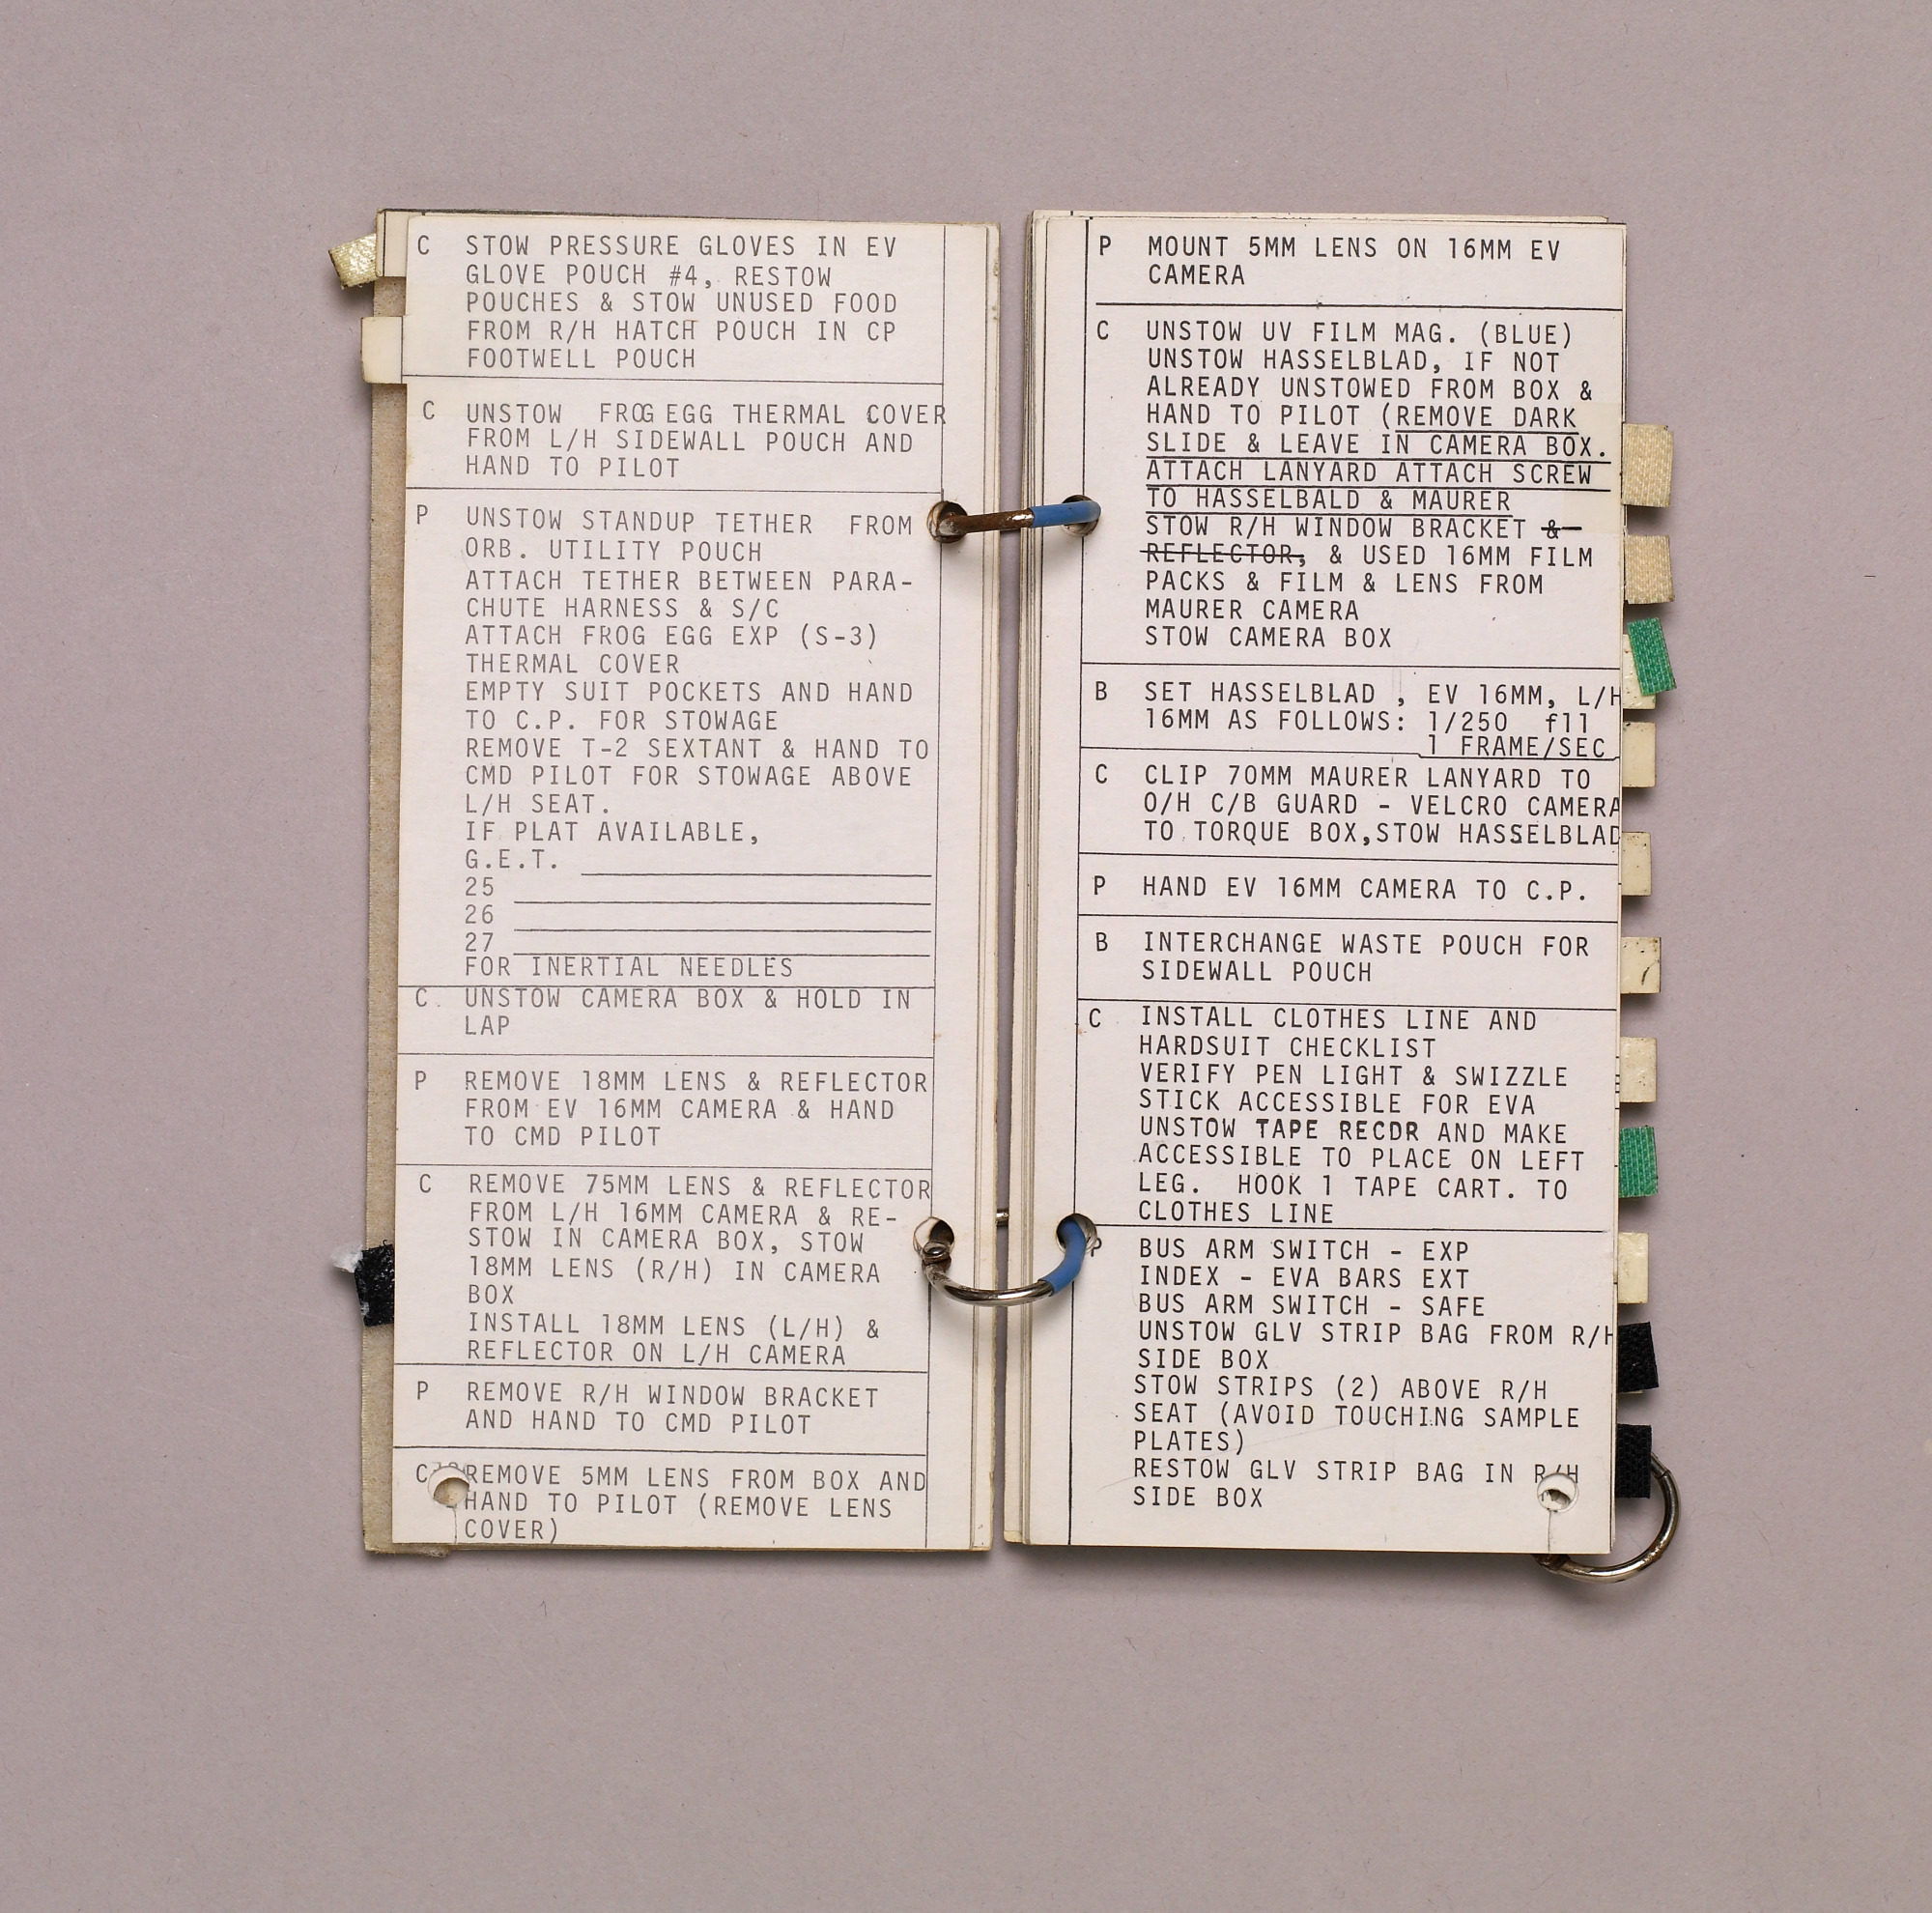 C STOW PRESSURE GLOVES IN EV
GLOVE POUCH #4, RESTOW
POUCHES & STOW UNUSED FOOD
FROM R/H HATCH POUCH IN CP
FOOTWELL POUCH
C UNSTOW FROG EGG THERMAL COVER
FROM L/H SIDEWALL POUCH AND
HAND TO PILOT
P UNSTOW STANDUP TETHER FROM
ORB. UTILITY POUCH
ATTACH TETHER BETWEEN PARA-
CHUTE HARNESS & S/C
ATTACH FROG EGG EXP (S-3)
THERMAL COVER
EMPTY SUIT POCKETS AND HAND
TO C.P. FOR STOWAGE
REMOVE T-2 SEXTANT & HAND TO
CMD PILOT FOR STOWAGE ABOVE
L/H SEAT.
IF PLAT AVAILABLE,
G.E.T.
25
26
27
FOR INERTIAL NEEDLES
C UNSTOW CAMERA BOX & HOLD IN
LAP
P REMOVE 18MM LENS & REFLECTOR
FROM EV 16MM CAMERA & HAND
TO CMD PILOT
C REMOVE 75MM LENS & REFLECTOR
FROM L/H 16MM CAMERA & RE-
STOW IN CAMERA BOX, STOW
18MM LENS (R/H) IN CAMERA
BOX
INSTALL 18MM LENS (L/H) &
REFLECTOR ON L/H CAMERA
P REMOVE R/H WINDOW BRACKET
AND HAND TO CMD PILOT
C REMOVE 5MM LENS FROM BOX AND
HAND TO PILOT (REMOVE LENS
COVER)
P MOUNT 5MM LENS ON 16MM EV
CAMERA
C UNSTOW UV FILM MAG. (BLUE)
UNSTOW HASSELBLAD, IF NOT
ALREADY UNSTOWED FROM BOX &
HAND TO PILOT (REMOVE DARK
SLIDE & LEAVE IN CAMERA BOX.
ATTACH LANYARD ATTACH SCREW
TO HASSELBALD & MAURER
STOW R/H WINDOW BRACKET &
REFLECTOR, & USED 16MM FILM
PACKS & FILM & LENS FROM
MAURER CAMERA
STOW CAMERA BOX
B SET HASSELBLAD , EV 16MM, L/H
16MM AS FOLLOWS: 1/250 f11
1 FRAME/SEC
C CLIP 70MM MAURER LANYARD TO
O/H C/B GUARD - VELCRO CAMERA
TO TORQUE BOX, STOW HASSELBLAD
P HAND EV 16MM CAMERA TO C.P.
B INTERCHANGE WASTE POUCH FOR
SIDEWALL POUCH
C INSTALL CLOTHES LINE AND
HARDSUIT CHECKLIST
VERIFY PEN LIGHT & SWIZZLE
STICK ACCESSIBLE FOR EVA
UNSTOW TAPE RECDR AND MAKE
ACCESSIBLE TO PLACE ON LEFT
LEG. HOOK 1 TAPE CART. TO
CLOTHES LINE
P BUS ARM SWITCH - EXP
INDEX - EVA BARS EXT
BUS ARM SWITCH - SAFE
UNSTOW GLV STRIP BAG FROM R/H
SIDE BOX
STOW STRIPS (2) ABOVE R/H
SEAT (AVOID TOUCHING SAMPLE
PLATES)
RESTOW GLV STRIP BAG IN R/H
SIDE BOX